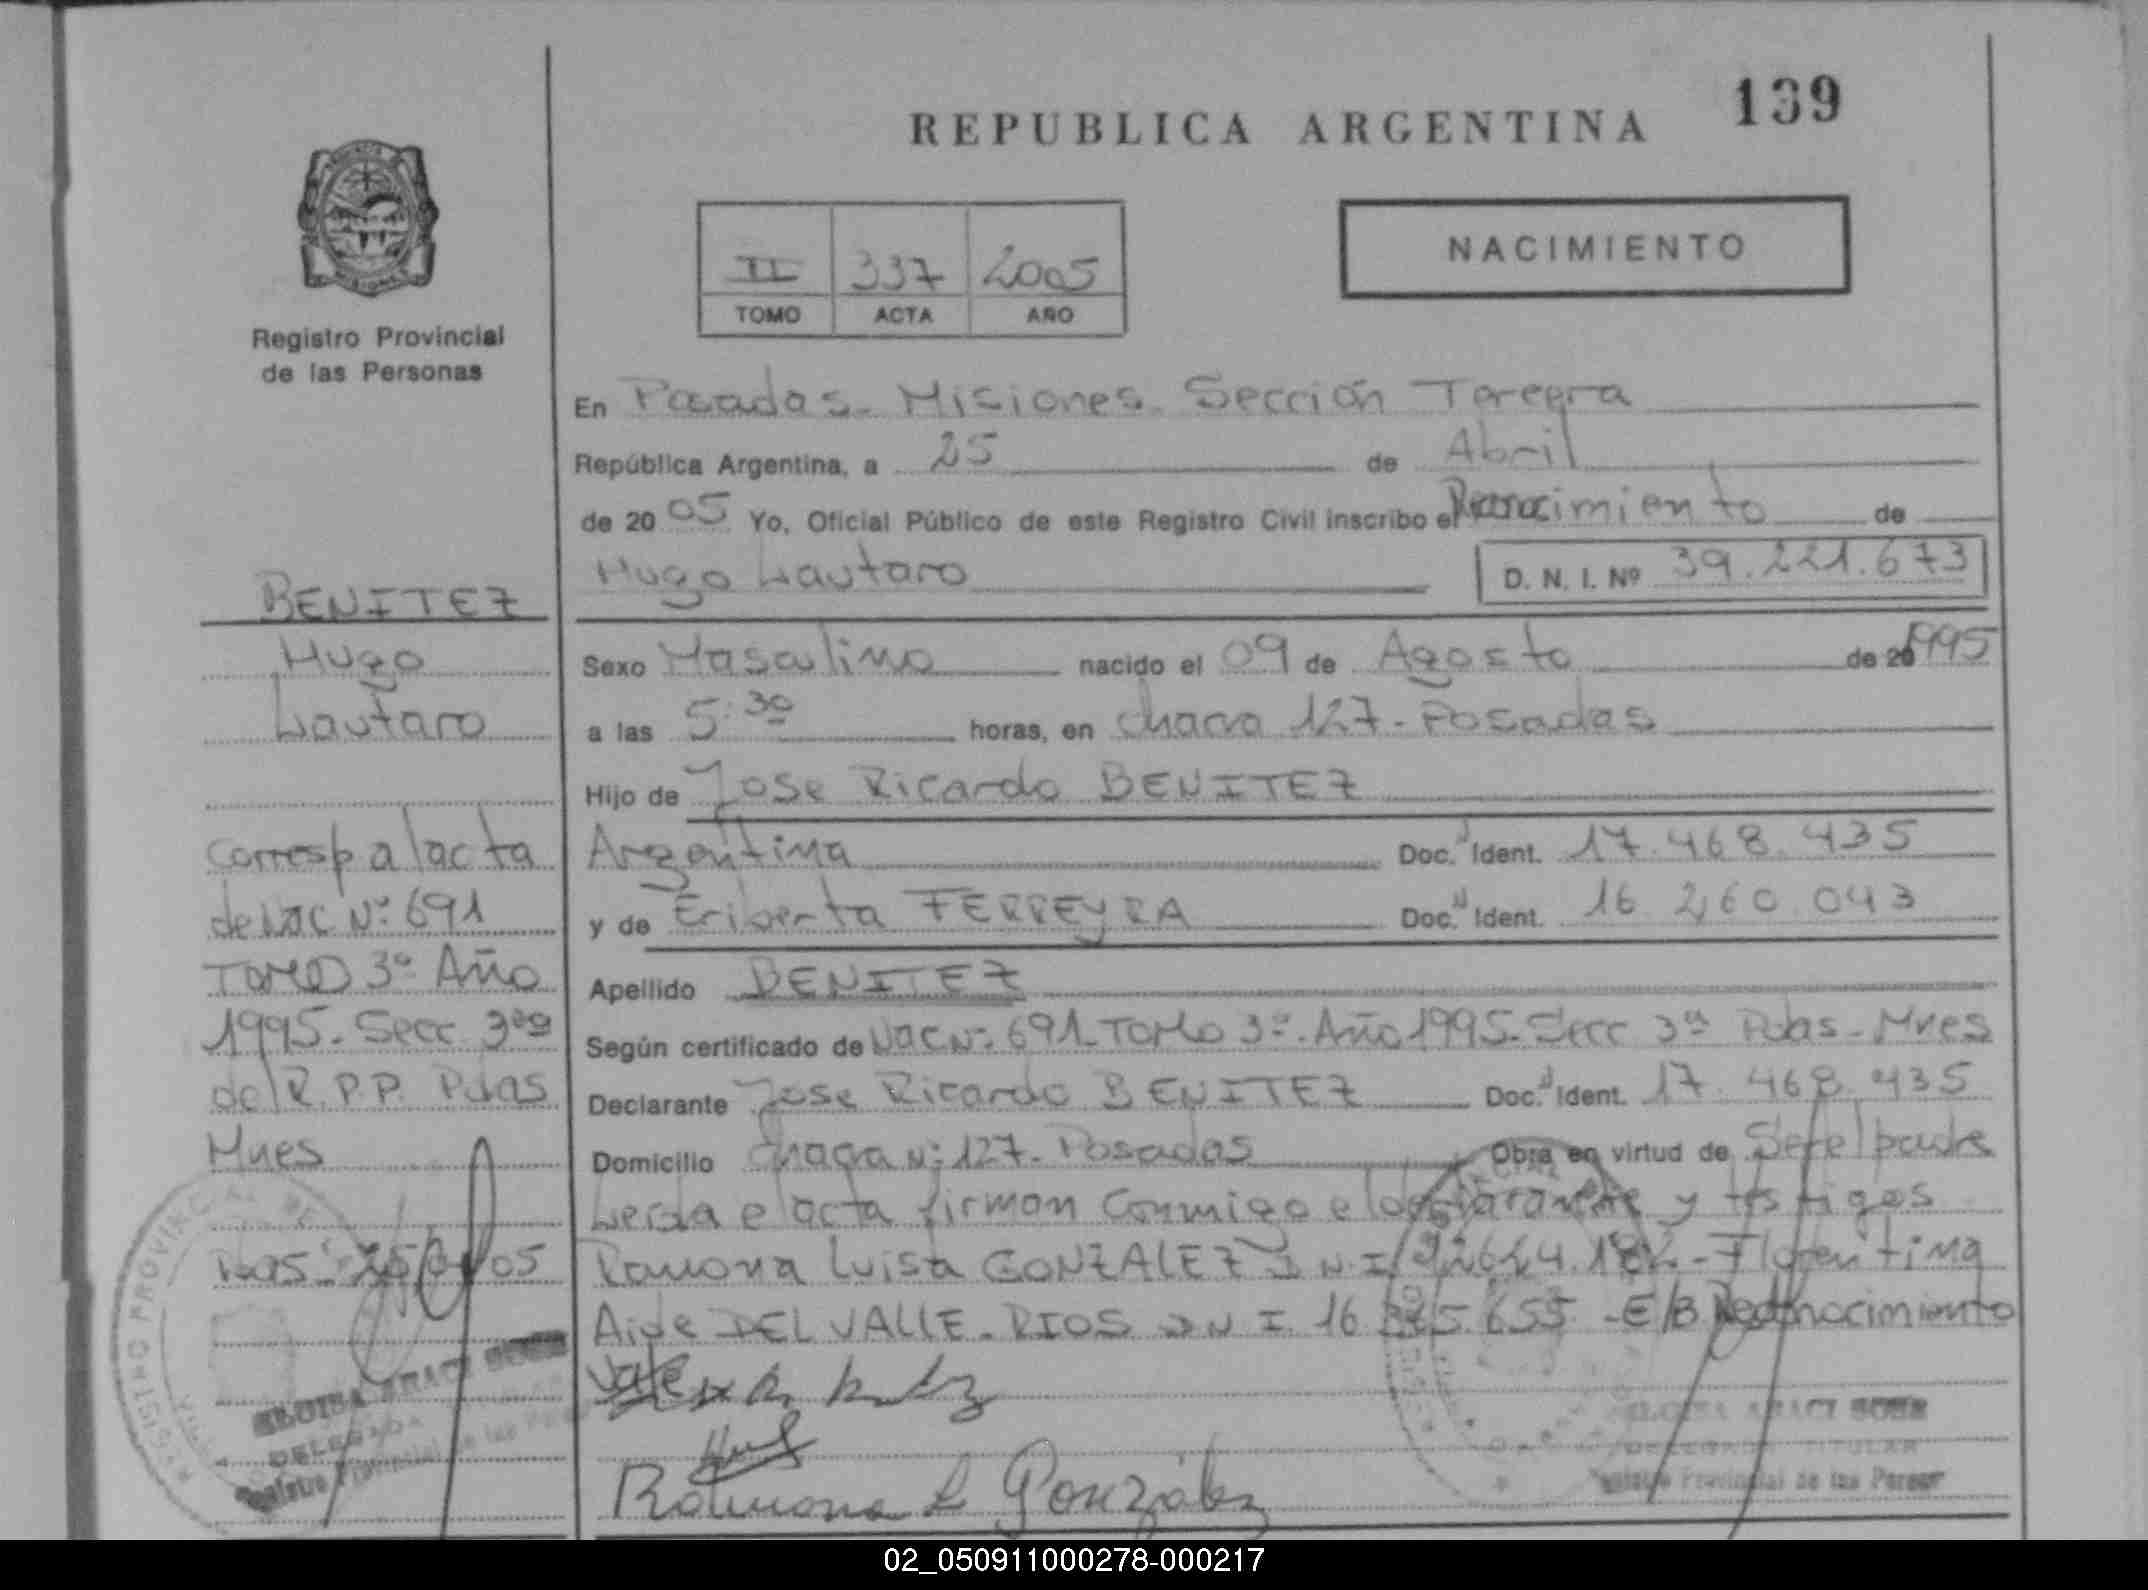 139
REPUBLICA ARGENTINA
NACIMIENTO
II 337 2005
TOMO ACTA AÑO
Registro Provincial
de las Personas
En Posadas - Misiones. Sección Tercera
República Argentina, a 25 de Abril
de 2005 Yo, Oficial Público de este Registro Civil inscribo el Reconocimiento de
Hugo Lautaro D. N. I. Nº 39.221.673
Sexo Masculino nacido el 09 de Agosto de 1995
a las 5:30 horas, en chacra 127 - Posadas
Hijo de Jose Ricardo BENITEZ
Argentina Doc. Ident. 17.468.435
y de Eriberta FERREYRA Doc. Ident. 16.260.043
Apellido BENITEZ
Según certificado de Nac Nº 691 - Tomo 3º - Año 1995 - Secc 3ª Pdas - Mnes
Declarante Jose Ricardo BENITEZ Doc. Ident. 17.468.435
Domicilio Chacra Nº 127 - Posadas Obra en virtud de Ser el padre
Leida el acta firman conmigo el declarante y testigos
Ramona Luisa GONZALEZ D.N.I. - Florentina
Aide DEL VALLE - RIOS D N I 16 655 - E/B Reconocimiento
Vale
Ramona L Gonzalez
BENITEZ
Hugo
Lautaro
Corresp al acta
de Nac Nº 691
TOMO 3º Año
1995 - Secc 3ra
del R.P.P. Pdas
Mnes
Pdas 05
REGISTRO PROVINCIAL DE
ELOISA ARACI SOSA
DELEGADA
Registro Provincial de las
ELOISA ARACI SOSA
DELEGADA TITULAR
Registro Provincial de las Person
02_050911000278-000217